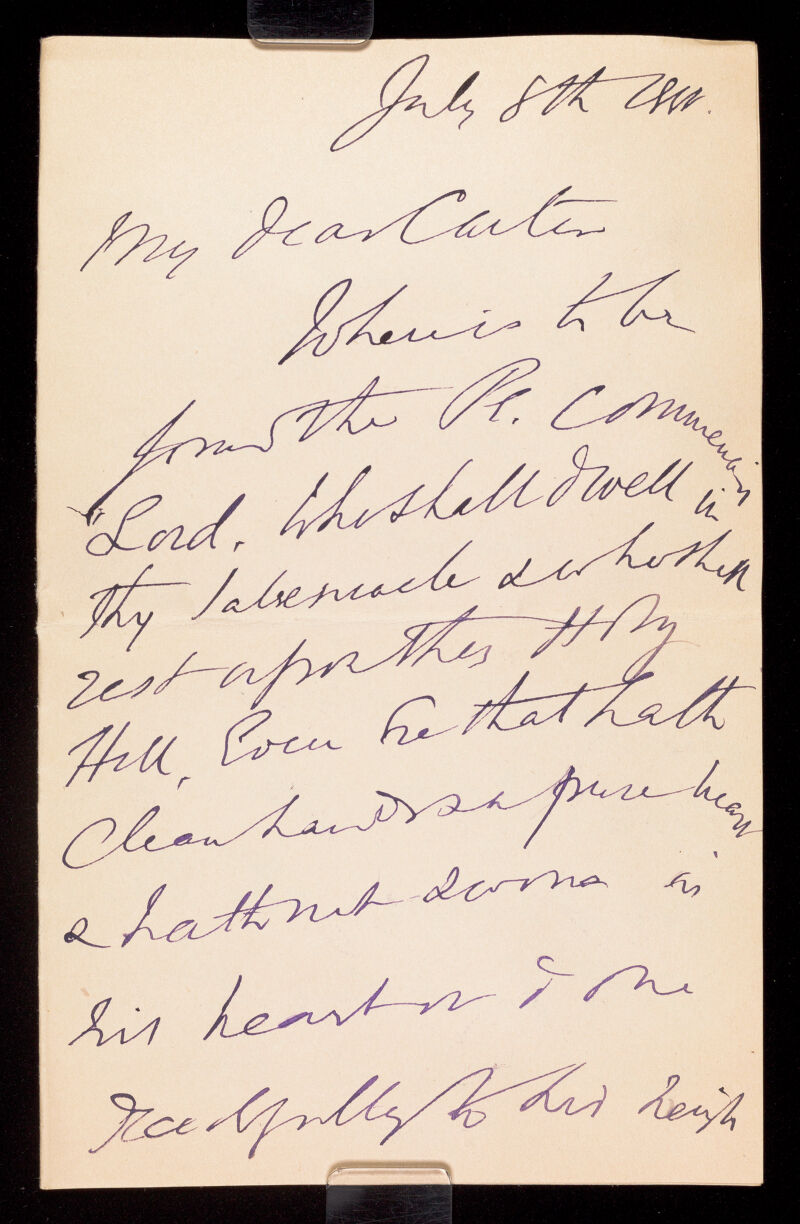 July 8th
My dear Carter
Where is to be
found the Ps. commencing
"Lord, who shall dwell in
Thy Tabernacle & who shall
rest upon thy Holy
Hill, Even he that hath
Clean hands & a pure heart
& hath not sworn in
his heart or done
deceitfully to his neigh